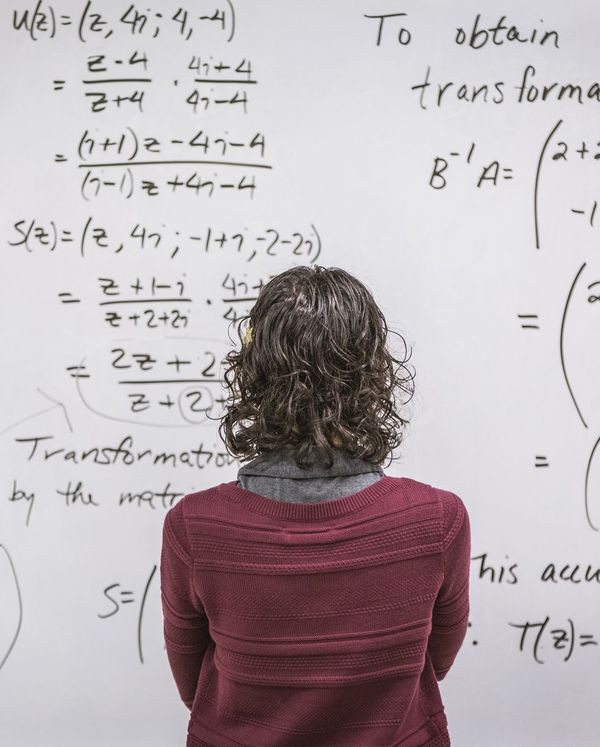 u(z)=(z, 4i; 4, -4)
= z-4 / z+4 · 4i+4 / 4i-4
= (i+1)z-4i-4 / (i-1)z+4i-4
S(z)=(z, 4i; -1+i, -2-2i)
= z+1-i / z+2+2i · 4i+ / 4
= 2z+2 / z+2
Transformation
by the matri
S=(
To obtain
transforma
B⁻¹A= (2+2
-1
= (2
= (
This accu
T(z)=